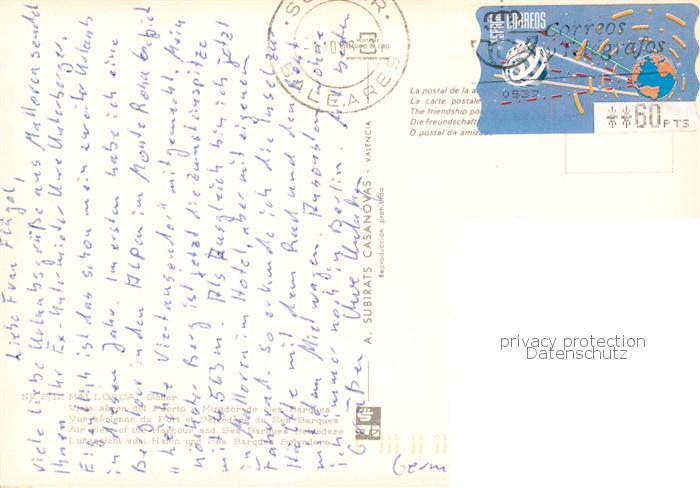 Liebe Frau Flügel,
viele liebe Urlaubsgrüße aus Mallorca sendet
Ihnen Ihr Ex-Untermieter Uwe
Eigentlich ist das schon mein zweiter Urlaub
in diesem Jahr. Im ersten habe ich eine
in den Alpen im Monte Rosa Gebiet
"leichte Viertausender" mitgemacht. Mein
höchster Berg ist jetzt die Zumsteinspitze
mit 4563 m. Als Ausgleich bin ich jetzt
in Mallorca im Hotel, aber mit eigenem
Fahrrad. So erkunde ich die Insel zur
Hälfte mit dem Rad und den Rest
mit dem Mietwagen. Ansonsten wohne
ich immer noch in Berlin.
Uwe
NR. 2712 MALLORCA. Sóller
Vista aérea del Puerto y Mirador de Ses Barques
Vue aérienne du Port et Belvedere de Ses Barques
Air view of the Harbour and Ses Barques Belvedere
Luftansicht von Hafen und Ses Barques Belvedere
A. SUBIRATS CASANOVAS - VALENCIA
Reproducción prohibida
BALEARES
ESPAÑA CORREOS
Correos
y Telégrafos
0537
**60 PTS
La postal de la a
La carte postale
The friendship po
Die Freundschaft
O postal da amiza
privacy protection
Datenschutz
Germ